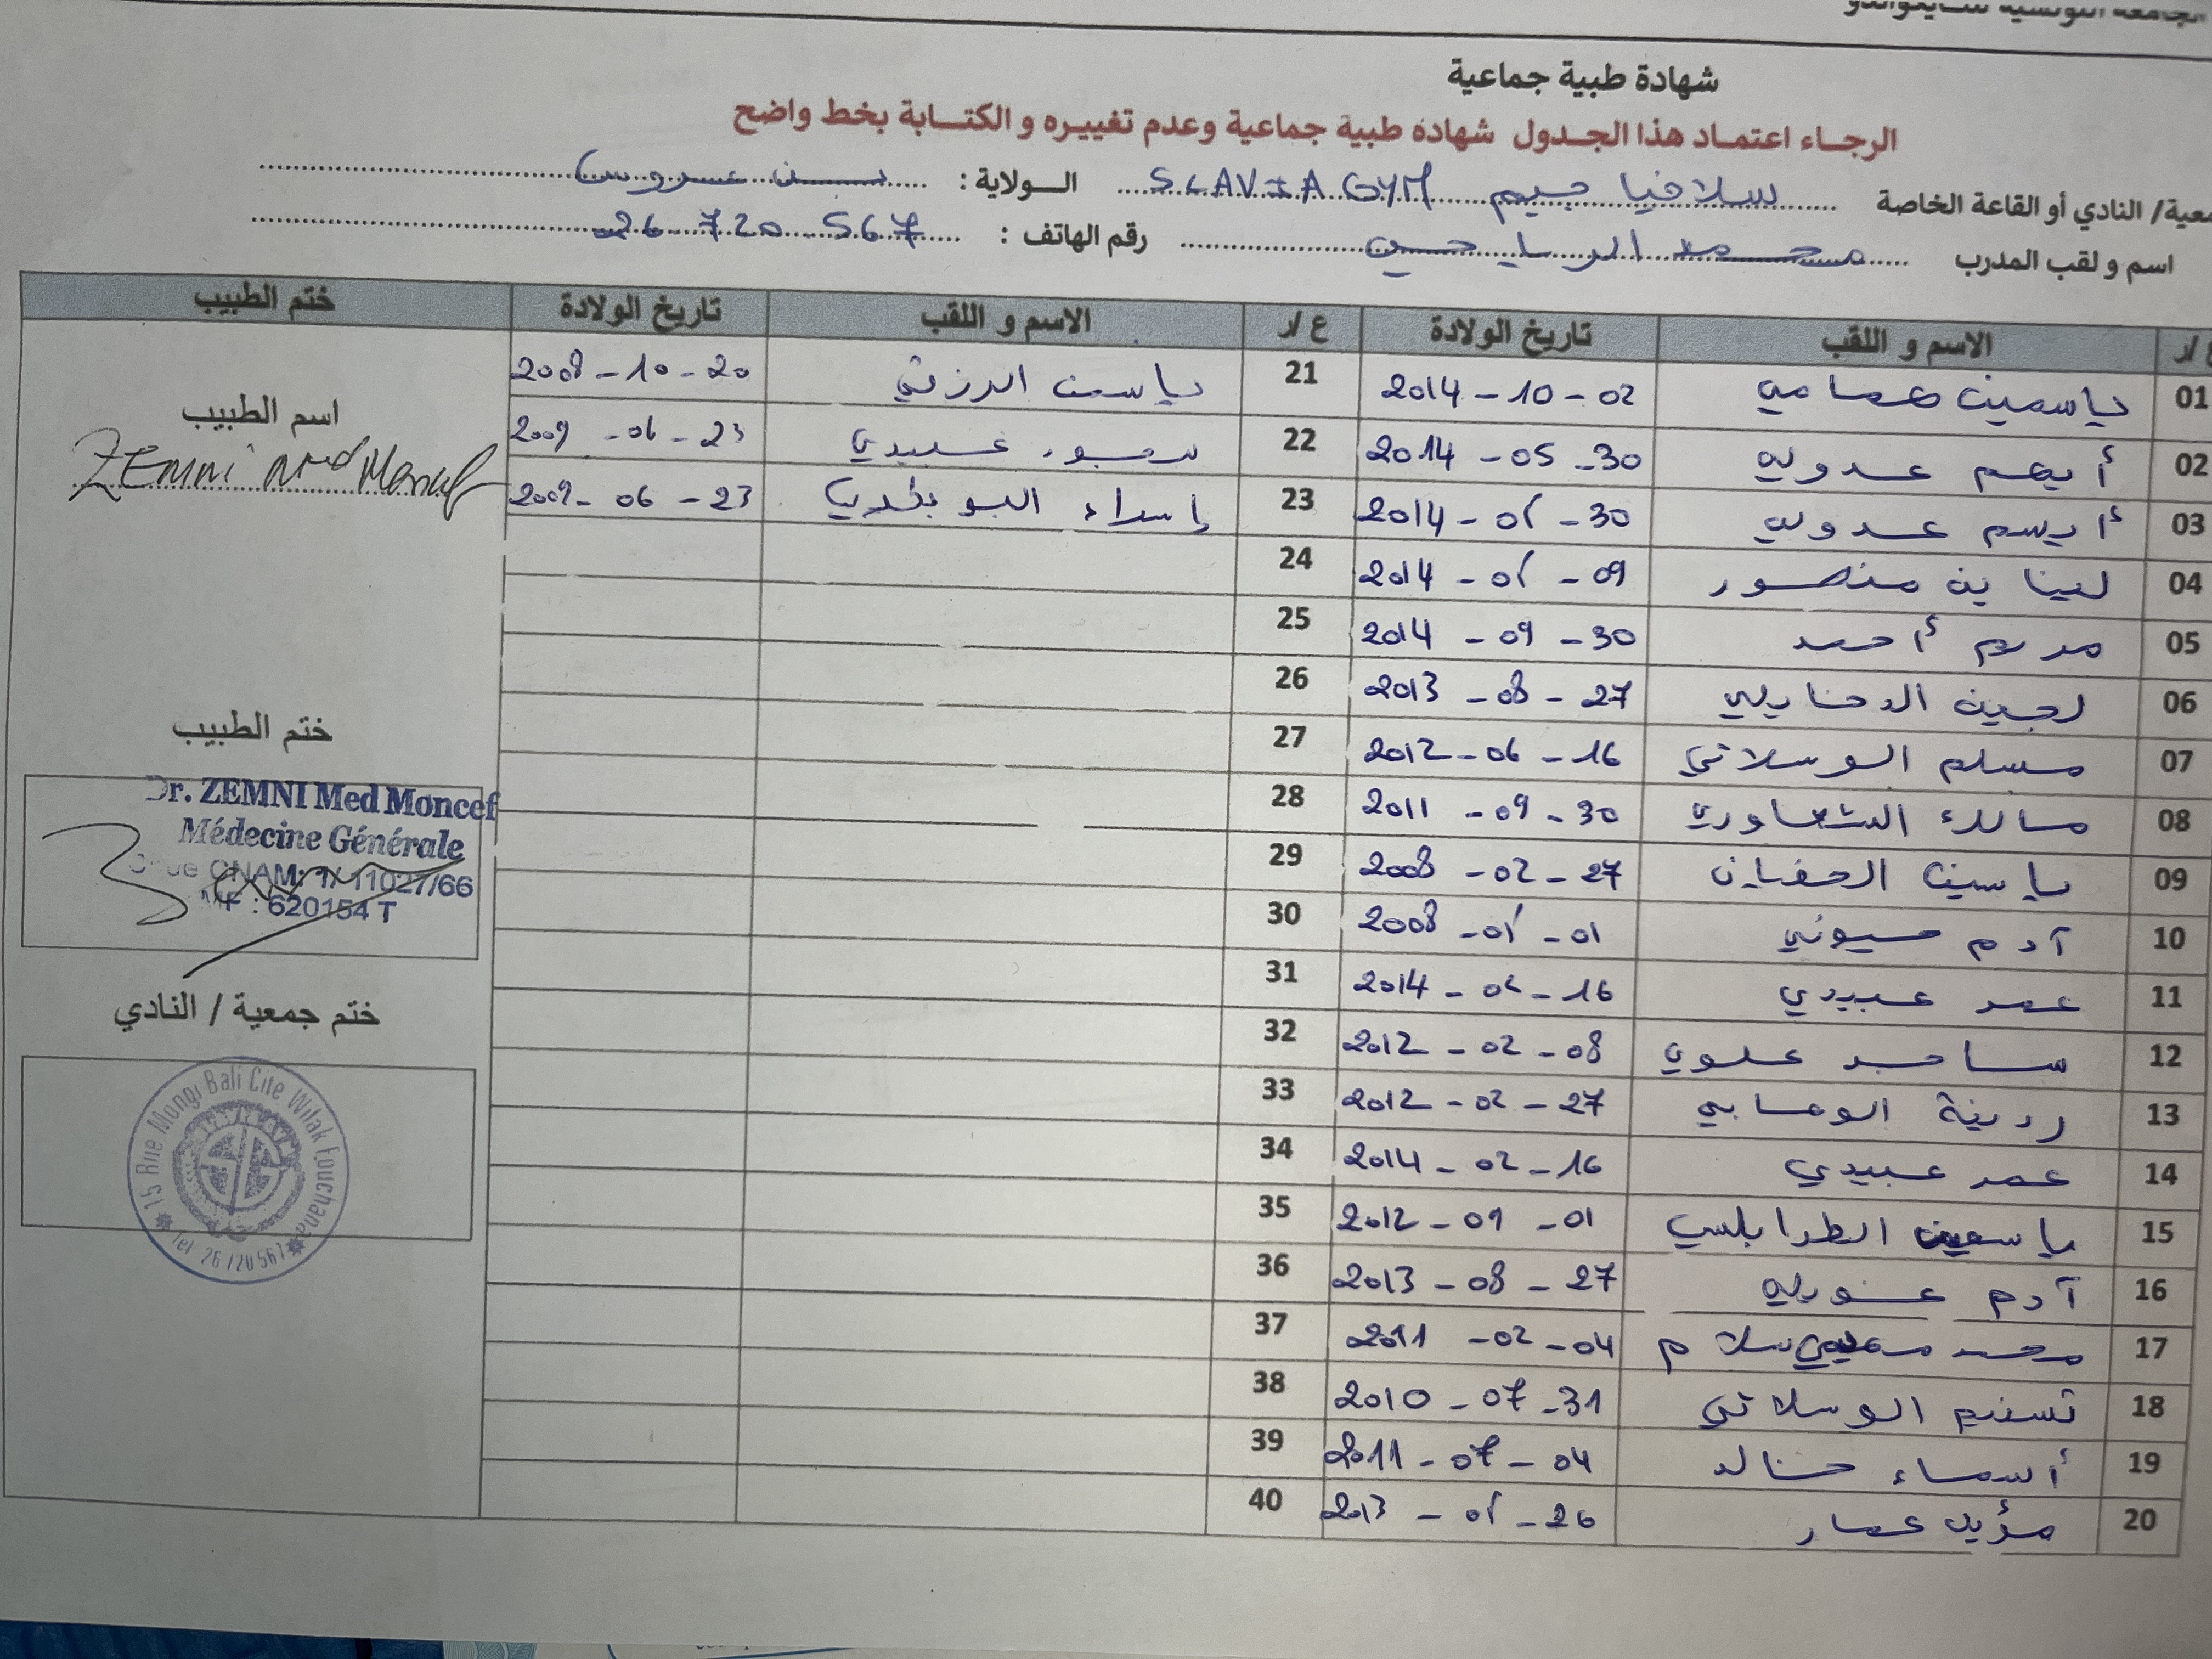 شهادة طبية جماعية
الرجاء اعتماد هذا الجدول شهادة طبية جماعية وعدم تغييره و الكتابة بخط واضح
النادي أو القاعة الخاصة سلافيا جيم SLAVIA GYM الولاية : بن عروس
اسم و لقب المدرب محمد الرياحي رقم الهاتف : 26 720 567
الاسم و اللقب تاريخ الولادة ع/ر الاسم و اللقب تاريخ الولادة ختم الطبيب
01 ياسمين عصامي 2014-10-02 21 ياسمين الرزقي 2008-10-20
02 أيهم 2014-05-30 22 عبيدي 2009-06-23
03 2014-01-30 23 إسراء 2009-06-23
04 لينا بن منصور 2014-01-09 24
05 مريم أحمد 2014-09-30 25
06 لجين 2013-08-27 26
07 الوسلاتي 2012-06-16 27
08 2011-09-30 28
09 ياسين 2008-02-27 29
10 آدم 2008-01-01 30
11 عمر عبيدي 2014-02-16 31
12 علوي 2012-02-08 32
13 2012-02-27 33
14 عمر عبيدي 2014-02-16 34
15 ياسمين الطرابلسي 2012-09-01 35
16 آدم 2013-08-27 36
17 محمد سلام 2011-02-04 37
18 تسنيم الوسلاتي 2010-07-31 38
19 أسماء خالد 2011-07-04 39
20 مؤيد عمار 2013-01-26 40
اسم الطبيب
ZEMNI Med Moncef
ختم الطبيب
Dr. ZEMNI Med Moncef
Médecine Générale
CNAM: 1/ 11027/66
MF : 620154 T
ختم جمعية / النادي
15 Rue Mongi Bali Cite Wifak Fouchana
Tel 26 720 567